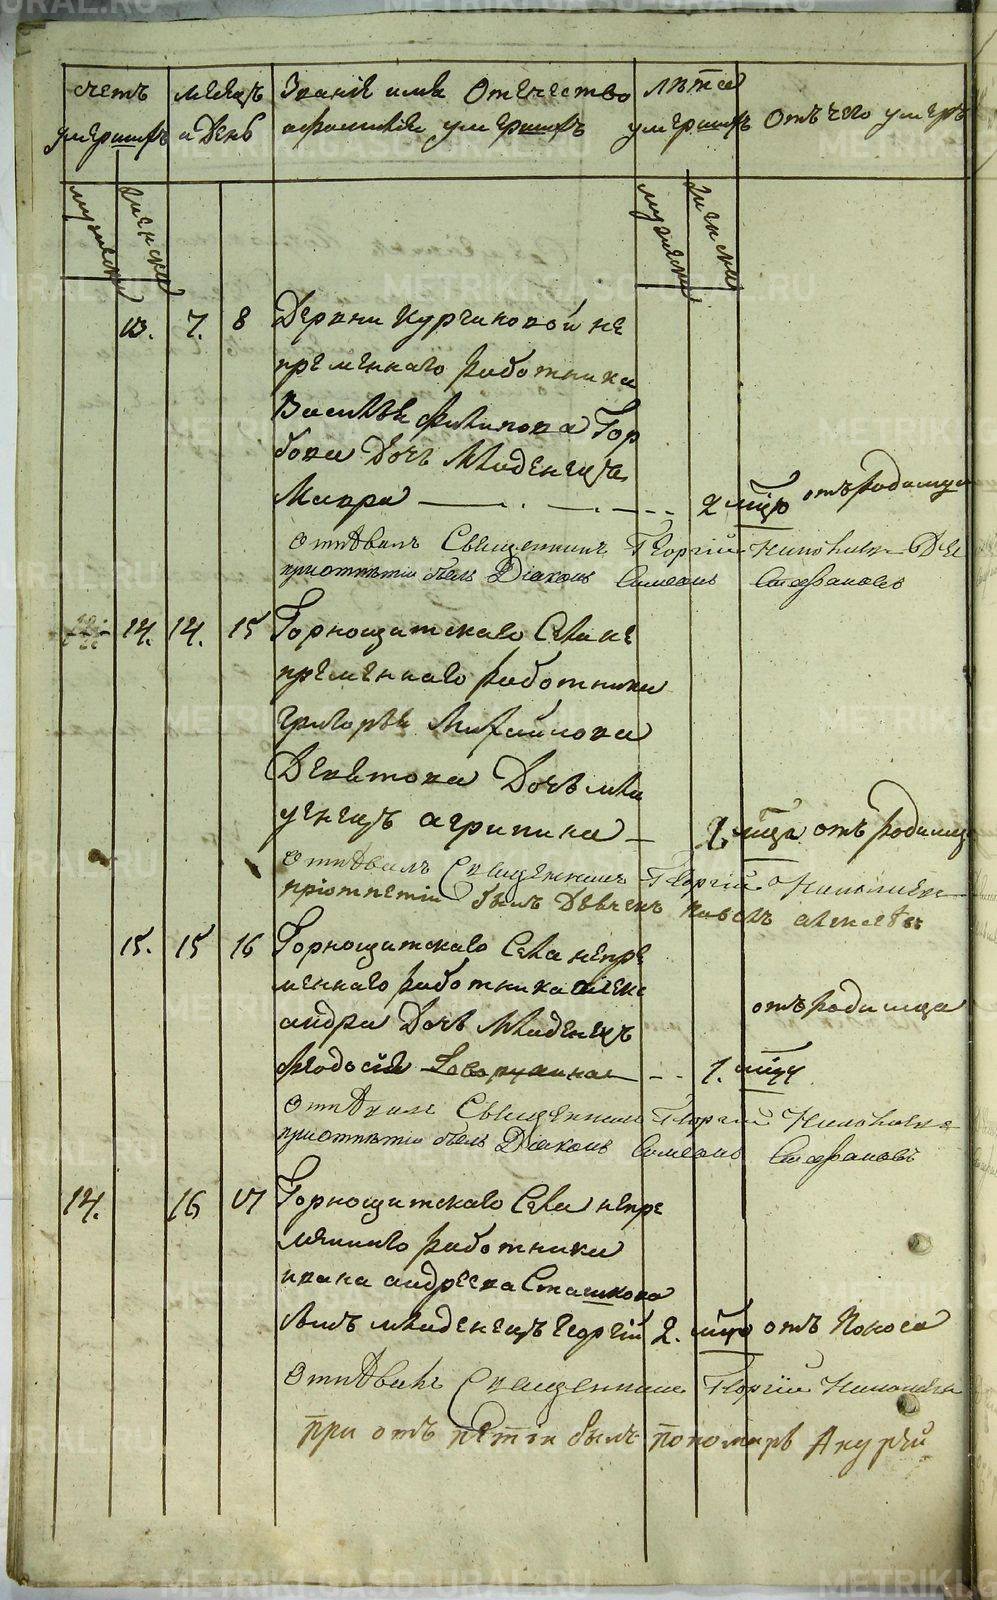 счетъ умершихъ
месяцъ и день
Званіе имя отечество
и фамилія умершихъ
лѣта умершихъ
отъ чего умеръ
мужеска
женска
мужеска
женска
13. 7. 8 Деревни Кургановой не
премѣннаго работника
Василья Филипова Гор
бова дочь младенецъ
Мавра 2 мѣсяцо отъ родимца
отпѣвалъ Священникъ Георгій
при отпѣтіи былъ Діаконъ Симеонъ Стефановъ
14. 14. 15 Горнощитскаго Села не
премѣннаго работника
Григорья Михайлова
Девятова дочь мла
денецъ агрипина 1. мѣсяца отъ родимца
отпѣвалъ Священникъ Георгій
при отпѣтіи былъ дьячекъ Павелъ алексеевъ
15. 15 16 Горнощитскаго Села непре
меннаго работника алекс
андра дочь младенецъ
Феодосія 1. мѣсяцу отъ родимца
отпѣвалъ Священникъ Георгій
при отпѣтіи былъ Діаконъ Симеонъ Стефановъ
14. 16 17 Горнощитскаго Села непре
меннаго работника
ивана андреева Сташкова
сынъ младенецъ георгій 2. мѣсяцо отъ поноса
отпѣвалъ Священникъ Георгій
при отъпетіи былъ пономарь
METRIKI.GASO-URAL.RU